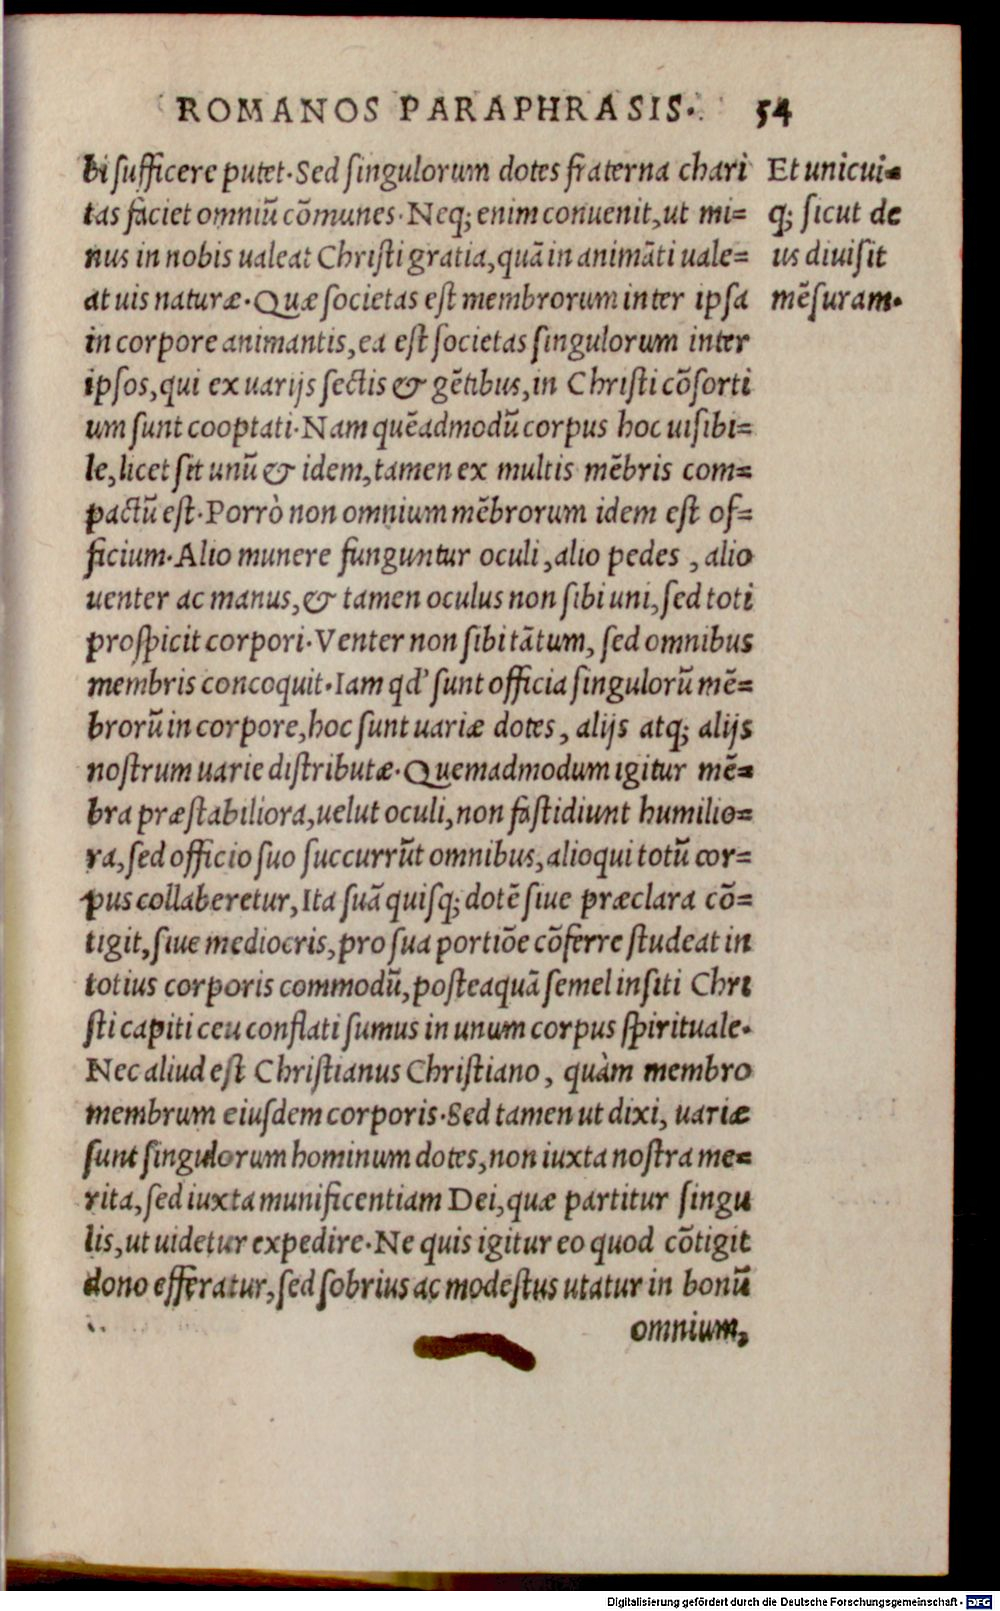 ROMANOS PARAPHRASIS. 54
bi ſufficere putet. Sed ſingulorum dotes fraterna chari
tas faciet omniũ cõmunes. Neq; enim conuenit, ut mi=
nus in nobis ualeat Chriſti gratia, quã in animãti uale=
at uis naturæ. Quæ ſocietas eſt membrorum inter ipſa
in corpore animantis, ea eſt ſocietas ſingulorum inter
ipſos, qui ex uarijs ſectis & gẽtibus, in Chriſti cõſorti
um ſunt cooptati. Nam quẽadmodũ corpus hoc uiſibi=
le, licet ſit unũ & idem, tamen ex multis mẽbris com=
pactũ eſt. Porrò non omnium mẽbrorum idem eſt of=
ficium. Alio munere funguntur oculi, alio pedes, alio
uenter ac manus, & tamen oculus non ſibi uni, ſed toti
proſpicit corpori. Venter non ſibi tãtum, ſed omnibus
membris concoquit. Iam qd' ſunt officia ſingulorũ mẽ=
brorũ in corpore, hoc ſunt uariæ dotes, alijs atq; alijs
noſtrum uarie diſtributæ. Quemadmodum igitur mẽ=
bra præſtabiliora, uelut oculi, non faſtidiunt humilio=
ra, ſed officio ſuo ſuccurrũt omnibus, alioqui totũ cor=
pus collaberetur, Ita ſuã quiſq; dotẽ ſiue præclara cõ=
tigit, ſiue mediocris, pro ſua portiõe cõferre ſtudeat in
totius corporis commodũ, poſteaquã ſemel inſiti Chri
ſti capiti ceu conflati ſumus in unum corpus ſpirituale.
Nec aliud eſt Chriſtianus Chriſtiano, quàm membro
membrum eiuſdem corporis. Sed tamen ut dixi, uariæ
ſunt ſingulorum hominum dotes, non iuxta noſtra me=
rita, ſed iuxta munificentiam Dei, quæ partitur ſingu
lis, ut uidetur expedire. Ne quis igitur eo quod cõtigit
dono efferatur, ſed ſobrius ac modeſtus utatur in bonũ
omnium,
Et unicui=
q; ſicut de
us diuiſit
mẽſuram.
Digitalisierung gefördert durch die Deutsche Forschungsgemeinschaft - DFG